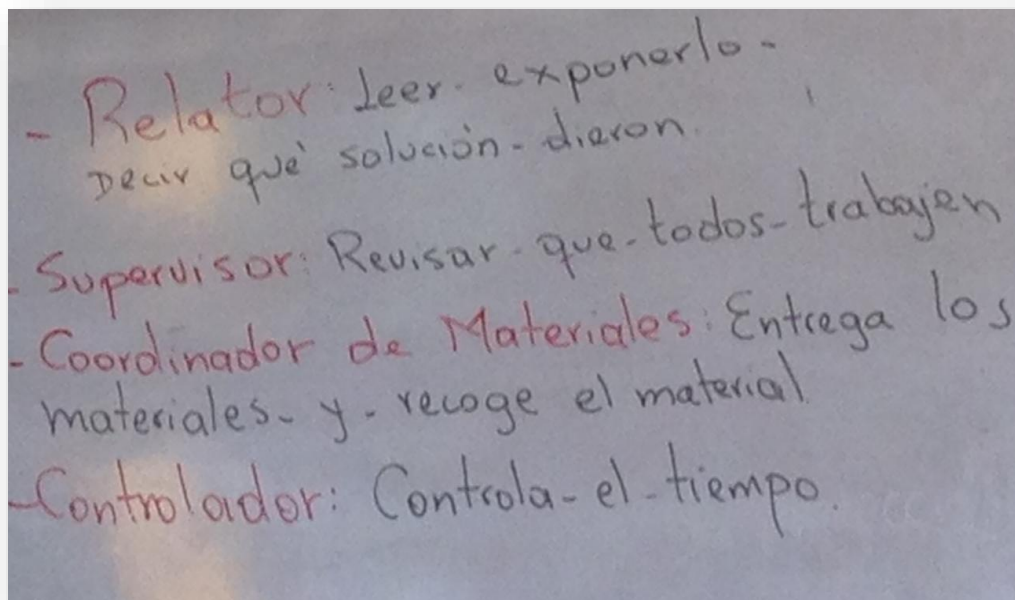 - Relator: Leer - exponerlo -
Decir qué solución - dieron.
- Supervisor: Revisar - que - todos - trabajen
- Coordinador de Materiales: Entrega los
materiales - y - recoge el material.
- Controlador: Controla - el - tiempo.